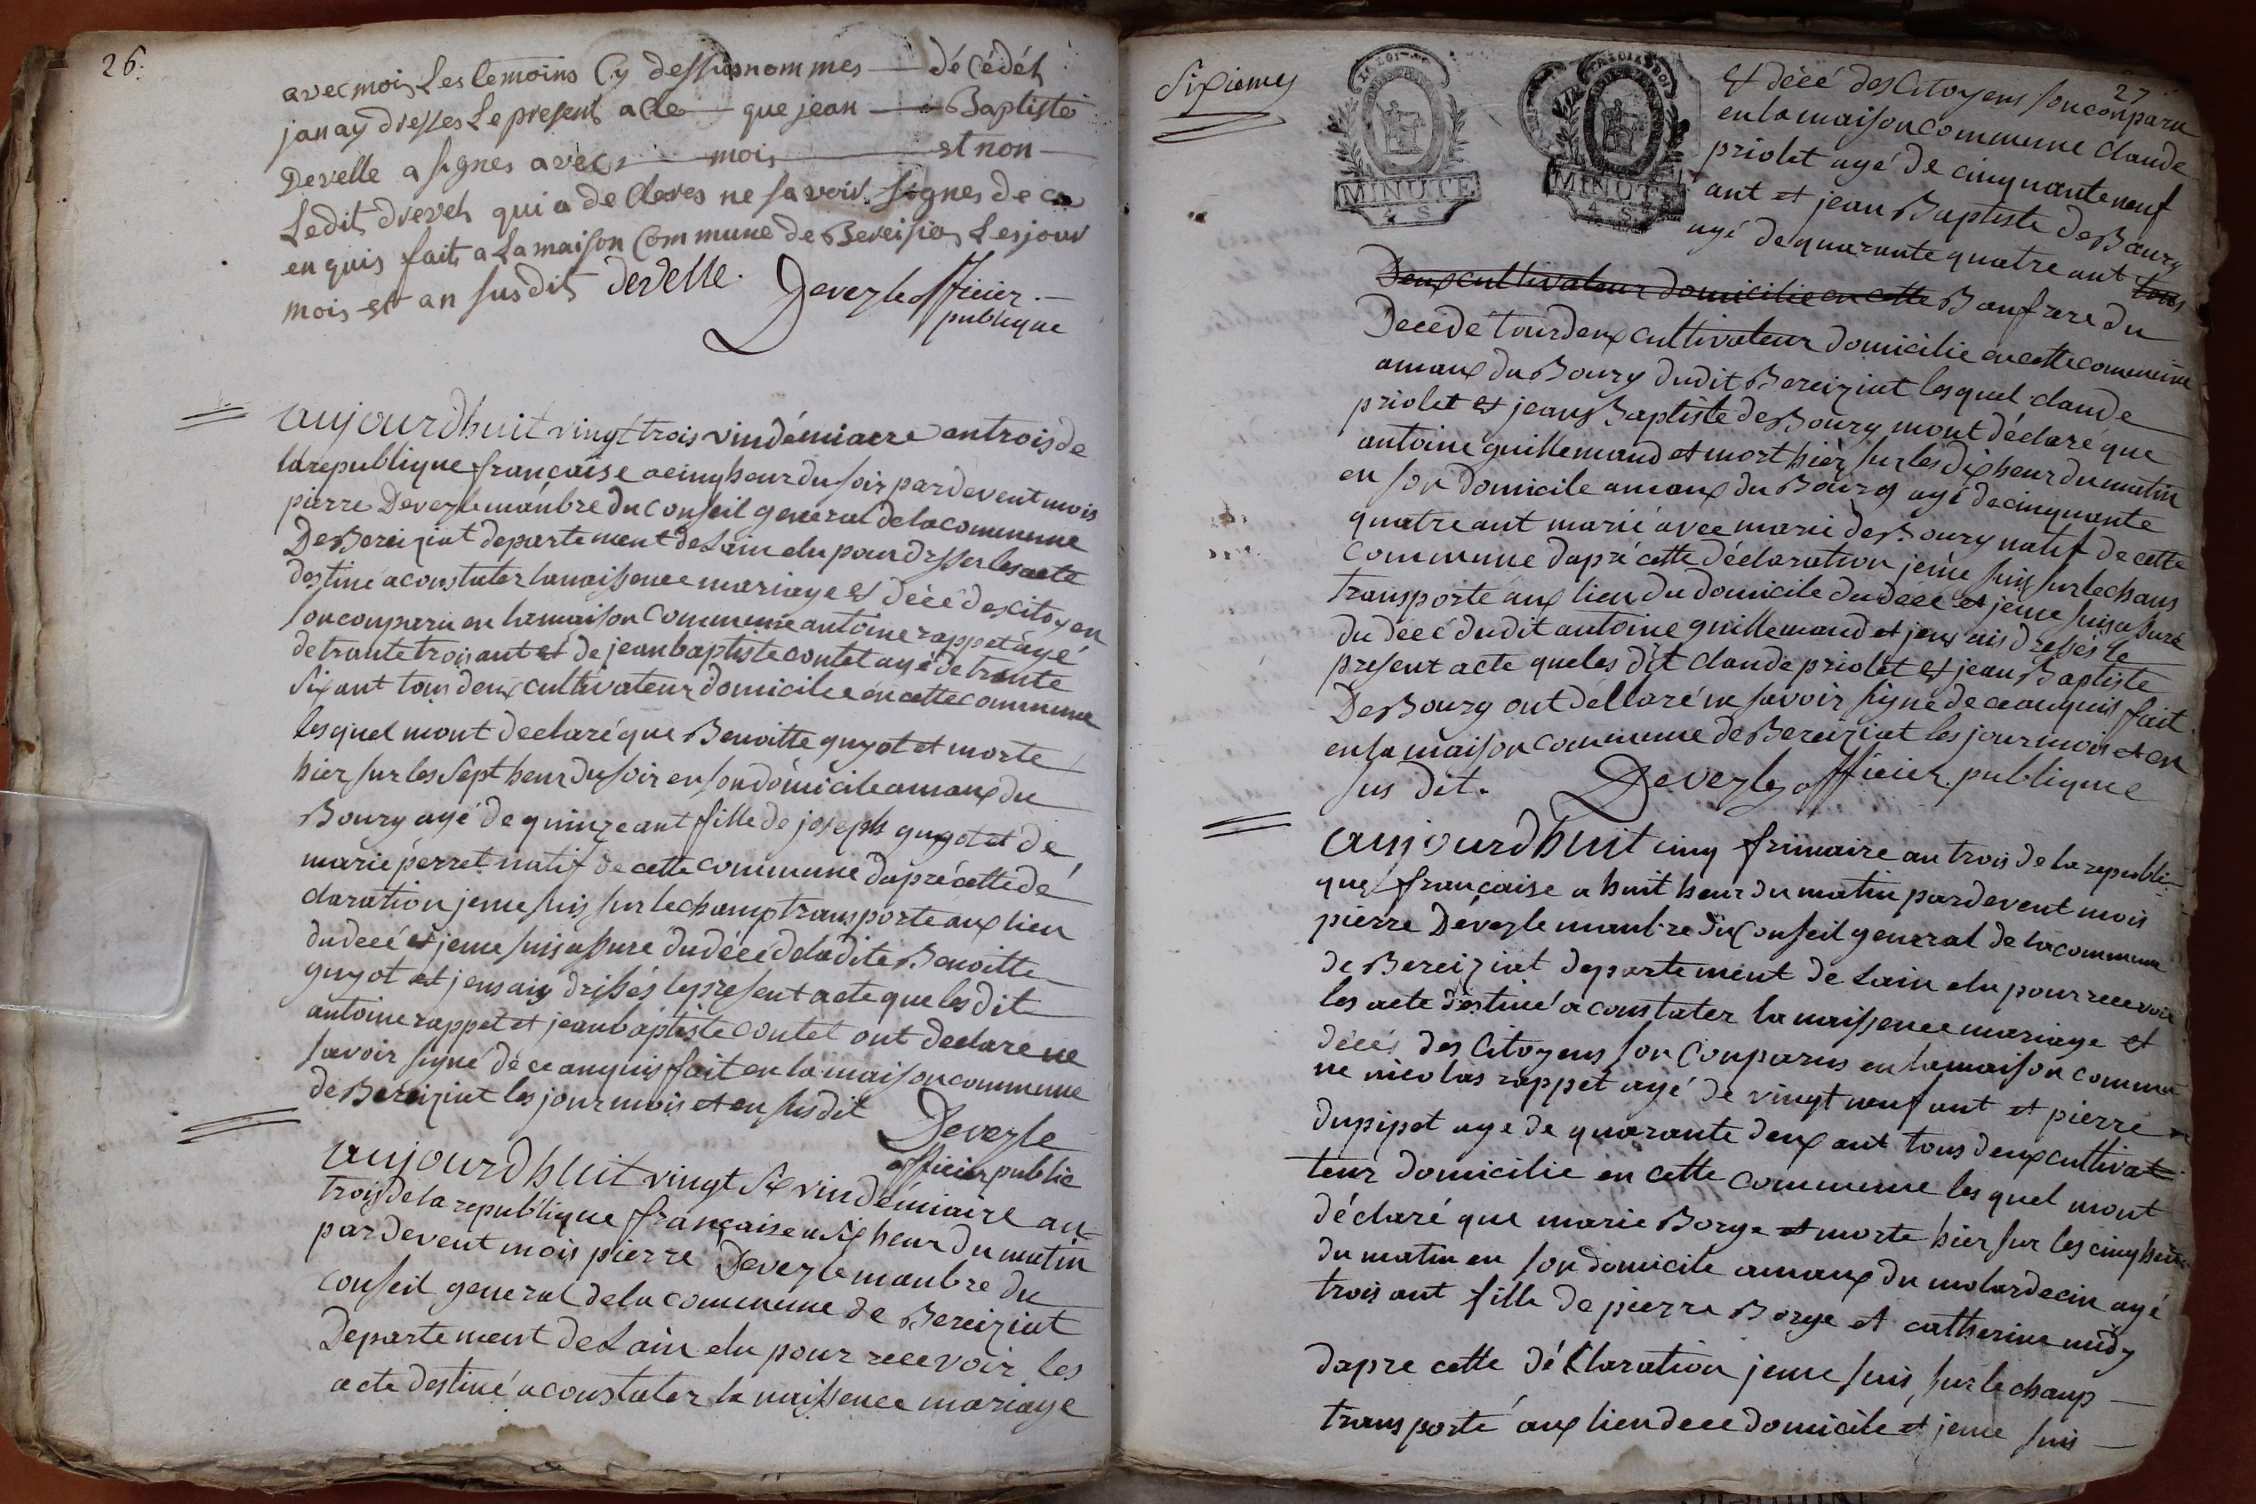 26.
avec mois Les temoins Cy dessusnommes — décédéh
janay dresses Le present acte — que jean — Baptiste
Develle a signes avec — mois — et non —
Ledit drevet qui a de Cleres ne savoir signes de ce
enquis fait a La maison Commune de Bereisia Les jour
mois et an susdit develle. Deveyle officier.—
publique
aujourdhuit vingt trois vindémiaere an trois de
la republique française a cinq heur du soir pardevent mois
pierre Deveyle manbre du Conseil general de la commune
De Bereiziat departement de Lain elu pour dresser les acte
destiné a constater la naissence mariage et décé des citoyen
son conparu en la maison commune antoine rappet agé
de trante trois ant et de jean baptiste contet agé de trante
six ant tous deux cultivateur domicilié en cette commune
les quel mont declaré que Benoitte guyot et morte
hier sur les sept heur du soir en son domicile amaux du
Bourg agé de quinze ant fille de joseph guyot et de
marie perret natif de cette commune dapré cette dé
claration je me suis sur le champ transporte aux lieu
du decé et je me suis assuré du décé de la dite Benoitte
guyot et jens ais drissés le present acte que les dit
antoine rappet et jean baptiste contet ont declare ne
savoir signé de ce anquis fait en la maison commune
de Bereiziat les jour mois et en sus dit Deveyle
officier public
aujourdhuit vingt six vindémiaire an
trois de la republique française a six heur du matin
par devent mois pierre Deveyle manbre du
conseil general de la commune de Bereiziat
Departement de Lain elu pour recevoir les
acte destiné a constater la naissence mariage
27
Sixiemes
MINUTE
4 S
MINUTE
4 S
et décé des Citoyens son conparu
en la maison commune claude
priolet agé de cinquante neuf
ant et jean Baptiste de Bourg
agé de quarante quatre ant tous
Deux cultivateur domicilie en cette Baufrere du
Decedé tour deux cultivateur domicilie en cette commune
amaux du Bourg dudit Bereiziat les quel claude
priolet et jean Baptiste de Bourg mont déclaré que
antoine guillemaud et mort hier sur les dix heur du matin
en son domicile amaux du Bourg agé de cinquante
quatre ant marié avec marie de Bourg natif de cette
commune dapré cette déclaration je me suis sur le chans
transporte aux lieu du domicile du decé et je me suis assuré
du decé dudit antoine guillemaud et jens ais dressés le
present acte que les dit claude priolet et jean Baptiste
De Bourg ont dellaré ne savoir signé de ce anquis fait
en la maison commune de Bereiziat les jour mois et en
sus dit. Deveyle officier publique
aujourdhuit cinq frimaire an trois de la republi-
que française a huit heur du matin par devent mois
pierre Deveyle manbre du Conseil general de la commune
de Bereiziat departement de Lain elu pour recevoir
les acte destiné a constater la naissence mariage et
décés des citoyens son Conparus en la maison commu
ne nicolas rappet agé de vingt neuf ant et pierre
dupipet age de quarante deux ant tous deux cultivat
teur domicilie en cette commune les quel mont
déclaré que marie Borge et morte hier sur les cinq heur
du matin en son domicile amaux du molardecin agé
trois ant fille de pierre Borge et catherine nudy
dapre cette déklaration je me suis sur le champ —
transporté aux lieu dece domicile et je me suis —